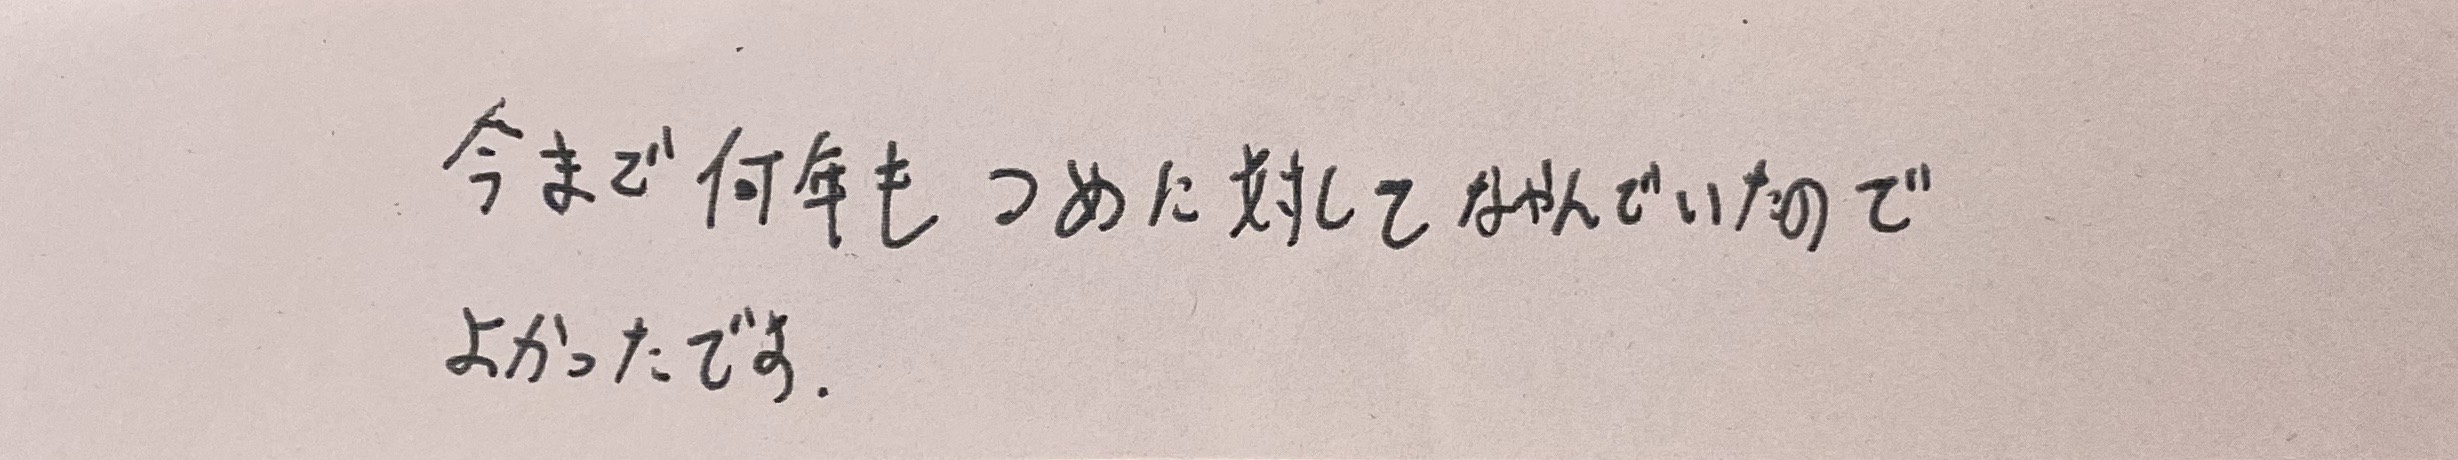 今まで何年もつめに対してなやんでいたので
よかったです.